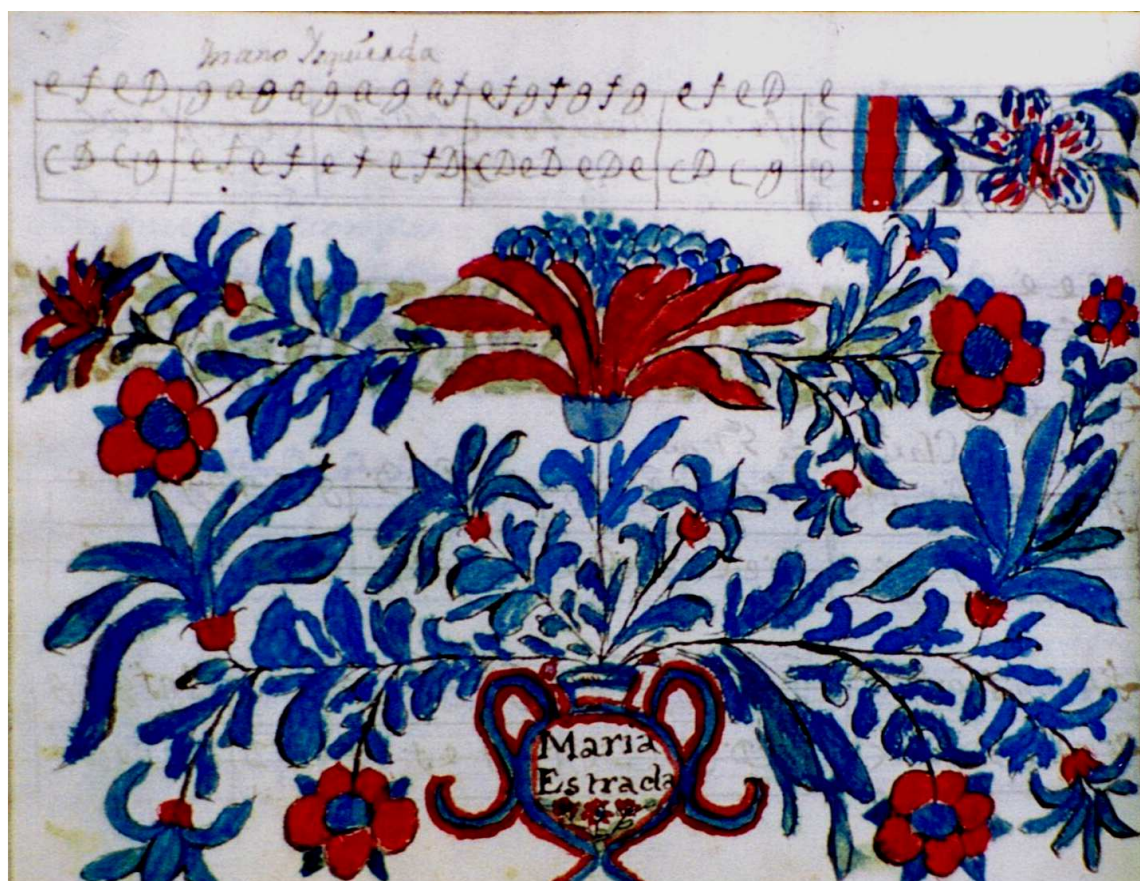 mano Izquierda
e f e D g a g a g a g a f e f g f g f g e f e D e
c
c D c g e f e f e f e f D c D e D e D e c D c g e
e e
Maria
Estrada